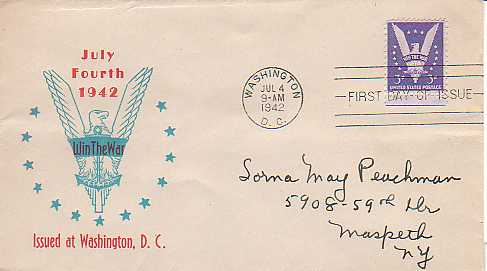 July
Fourth
1942
Win The War
Issued at Washington, D. C.
WASHINGTON
JUL 4
9-AM
1942
D. C.
WIN THE WAR
3¢ 3¢
UNITED STATES POSTAGE
FIRST DAY OF ISSUE
Lorna May Peachman
5908-59th Dr
Maspeth
NY